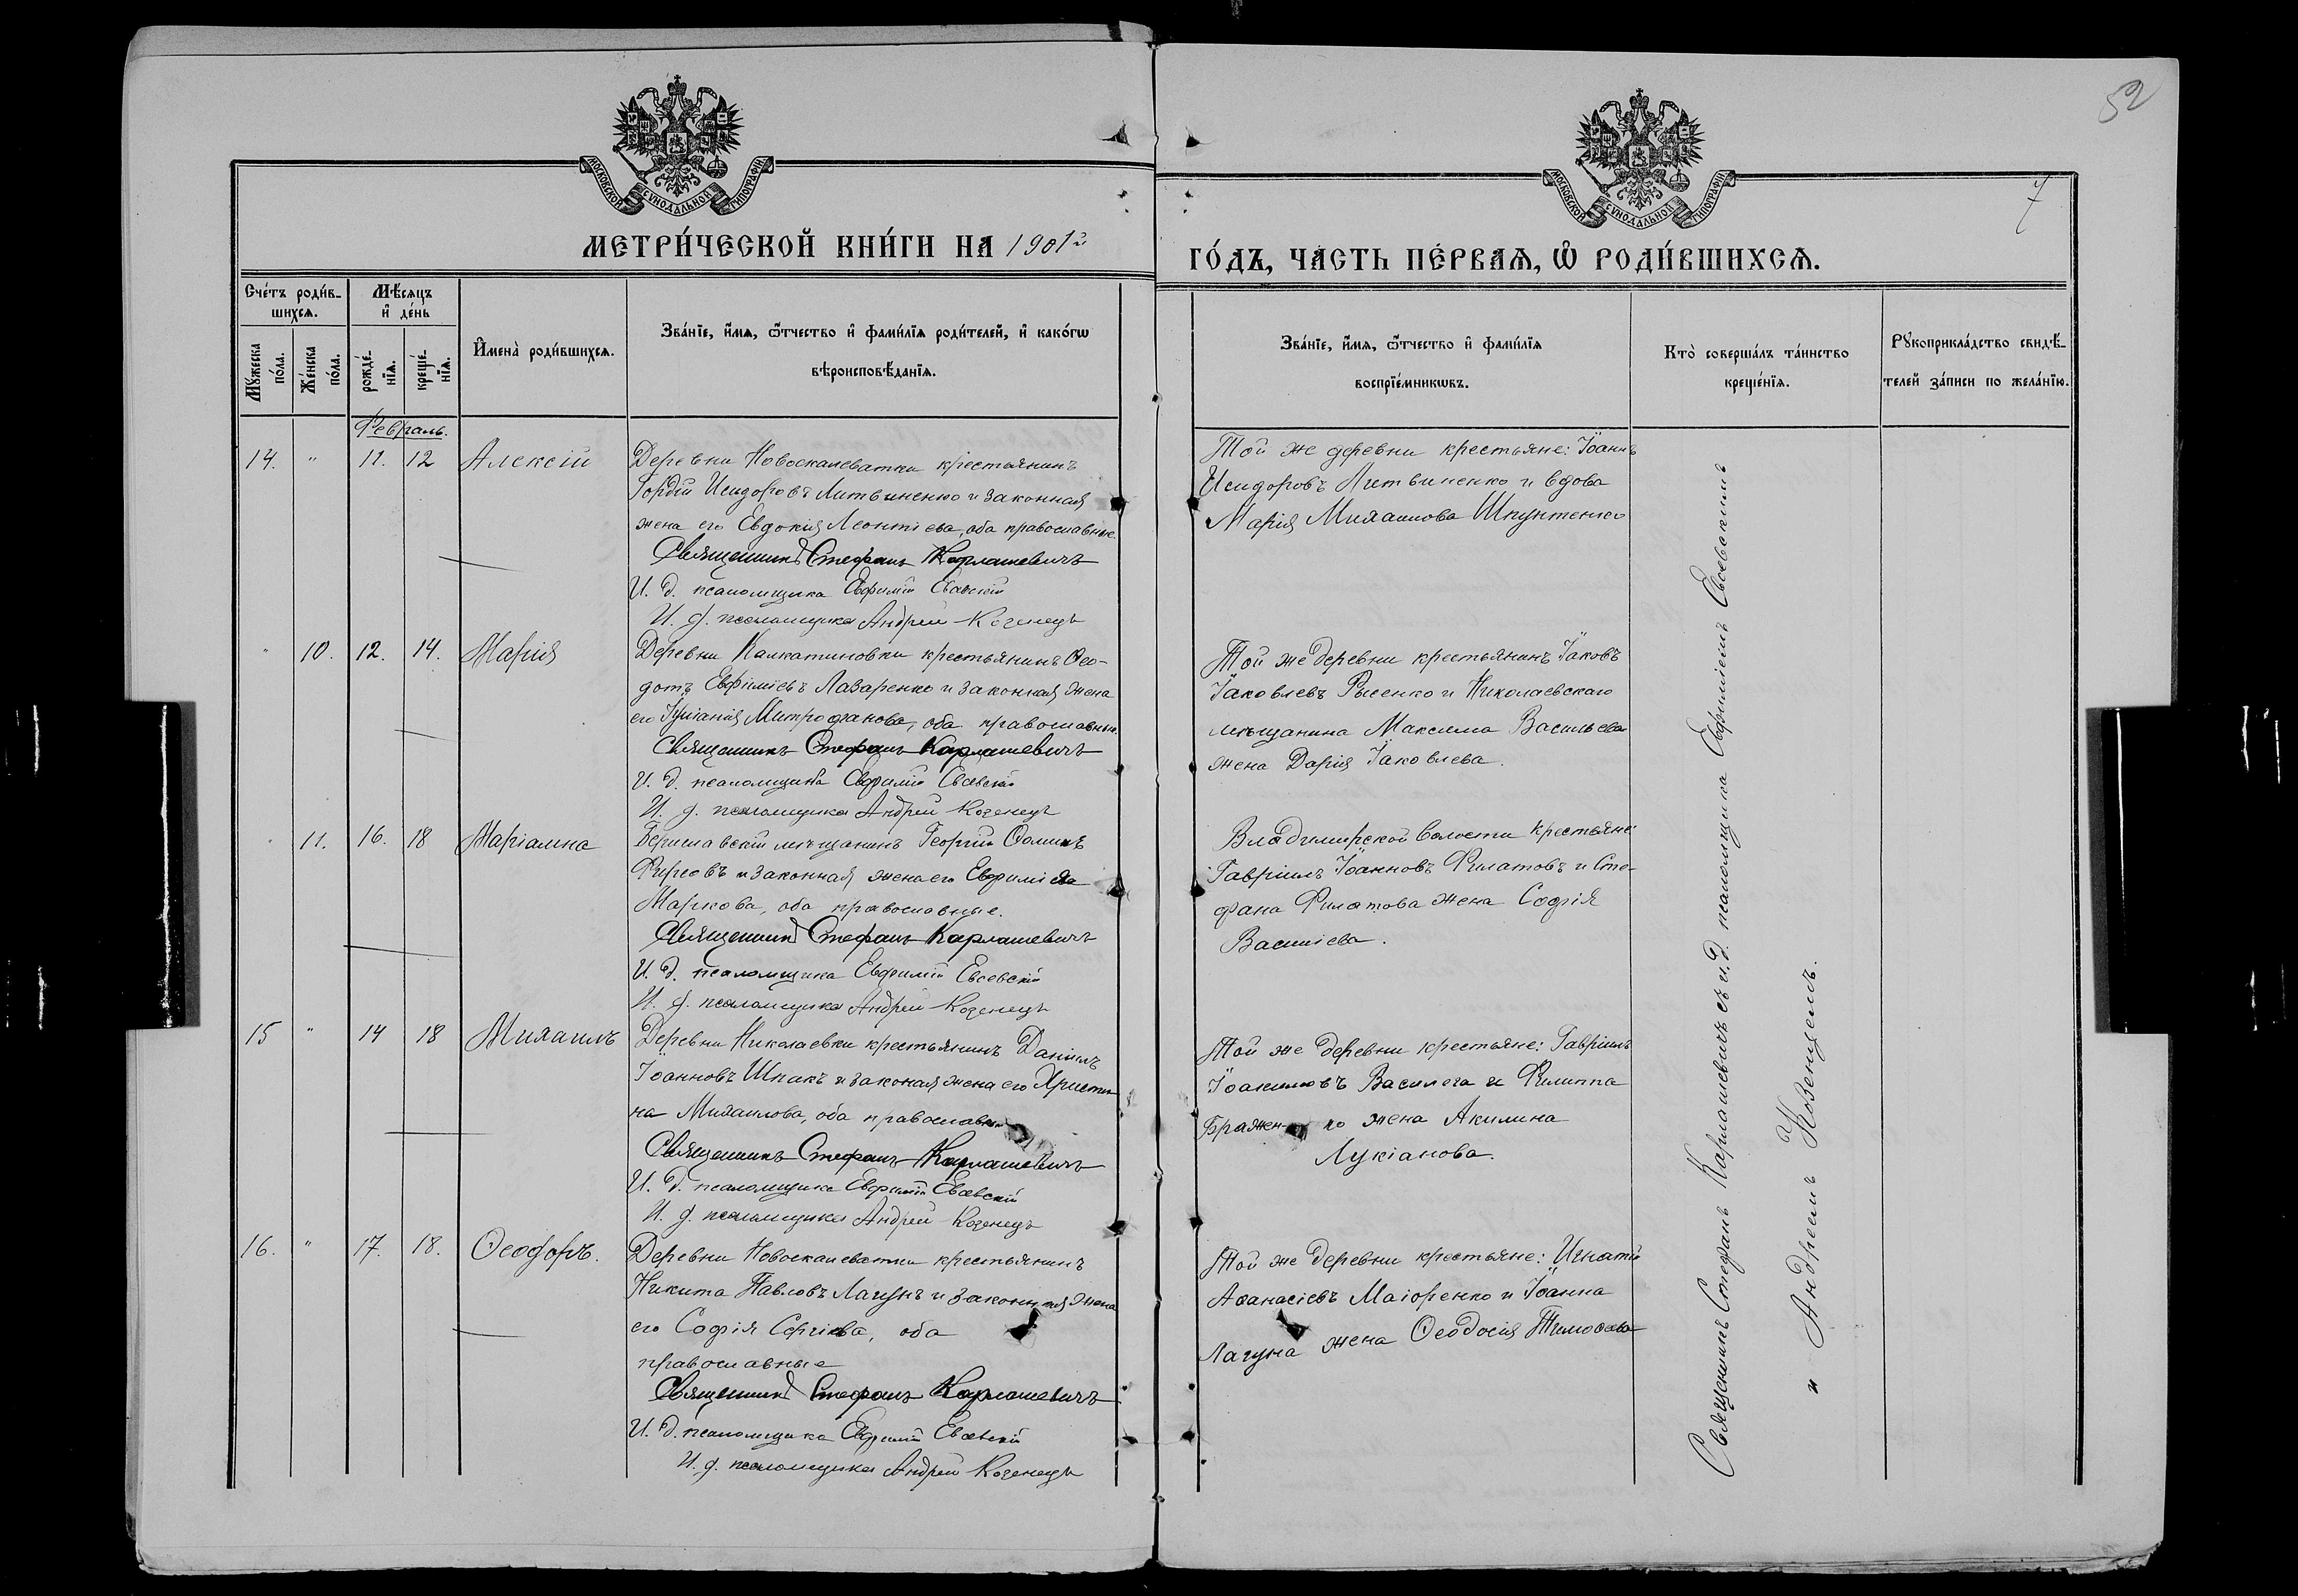 52
7
МОСКОВСКОЙ СУНОДАЛЬНОЙ ТИПОГРАФІИ
МОСКОВСКОЙ СУНОДАЛЬНОЙ ТИПОГРАФІИ
МЕТРИ́ЧЕСКОЙ КНИ́ГИ НА 1901й
ГО́ДЪ, ЧА́СТЬ ПЕ́РВАѦ, Ѡ РОДИ́ВШИХСѦ.
Сче́тъ роди́в-
шихсѧ.
Мѣ́сѧцъ
и де́нь
Мꙋ́жеска
по́ла.
Же́нска
по́ла.
рожде́-
нїѧ.
креще́-
нїѧ.
И҆мена̀ роди́вшихсѧ.
Зва́нїе, и҆́мѧ, ѻ҆́тчество и҆ фами́лїѧ роди́телей, и҆ како́гѡ
вѣроисповѣ́данїѧ.
Зва́нїе, и҆́мѧ, ѻ҆́тчество и҆ фами́лїѧ
воспрїе́мникѡвъ.
Кто̀ соверша́лъ та́инство
креще́нїѧ.
Рꙋкоприкла́дство свидѣ́-
телей за́писи по жела́нїю.
Февраль.
14. " 11. 12 Алексій
Деревни Новоскалеватки крестьянинъ
Гордій Исидоровъ Литвиненко и законная
жена его Евдокія Леонтіева, оба православные.
Священникъ Стефанъ Карлашевичъ
И. д. псаломщика Евфимій Евсевскій
И. д. псаломщика Андрей Козенецъ
Той же деревни крестьяне: Іоаннъ
Исидоровъ Литвиненко и вдова
Марія Михаилова Шпунтенко
" 10. 12. 14. Марія
Деревни Калкатиновки крестьянинъ Ѳео-
дотъ Евфиміевъ Лазаренко и законная жена
его Іуліанія Митрофанова, оба православные.
Священникъ Стефанъ Карлашевичъ
И. д. псаломщика Евфимій Евсевскій
И. д. псаломщика Андрей Козенецъ
Той же деревни крестьянинъ Іаковъ
Іаковлевъ Рысенко и Николаевскаго
мѣщанина Максима Васильева
жена Дарія Іаковлева.
" 11. 16. 18 Маріамна
Бериславскій мѣщанинъ Георгій Ѳоминъ
Фирсовъ и законная жена его Евфимія
Маркова, оба православные.
Священникъ Стефанъ Карлашевичъ
И. д. псаломщика Евфимій Евсевскій
И. д. псаломщика Андрей Козенецъ
Владимирской волости крестьяне:
Гавріилъ Іоанновъ Филатовъ и Сте-
фана Филатова жена Софія
Василіева.
15 " 14 18 Михаилъ
Деревни Николаевки крестьянинъ Даніилъ
Іоанновъ Шпакъ и законая жена его Христи
на Михаилова, оба православные
Священникъ Стефанъ Карлашевичъ
И. д. псаломщика Евфимій Евсевскій
И. д. псаломщика Андрей Козенецъ
Той же деревни крестьяне: Гавріилъ
Іоакимовъ Василега и Филиппа
Бражен ко жена Акилина
Лукіанова.
16. " 17. 18. Ѳеодоръ.
Деревни Новоскалеватки крестьянинъ
Никита Павловъ Лагунъ и законная жена
его Софія Сергіева, оба
православные
Священникъ Стефанъ Карлашевичъ
И. д. псаломщика Евфимій Евсевскій
И. д. псаломщика Андрей Козенецъ
Той же деревни крестьяне: Игнатій
Аѳанасіевъ Маіоренко и Іоанна
Лагуна жена Ѳеодосія Тимоѳеева
Священникъ Стефанъ Карлашевичъ съ и. д. псаломщика Евфиміемъ Евсевскимъ
и Андреемъ Козенцемъ.